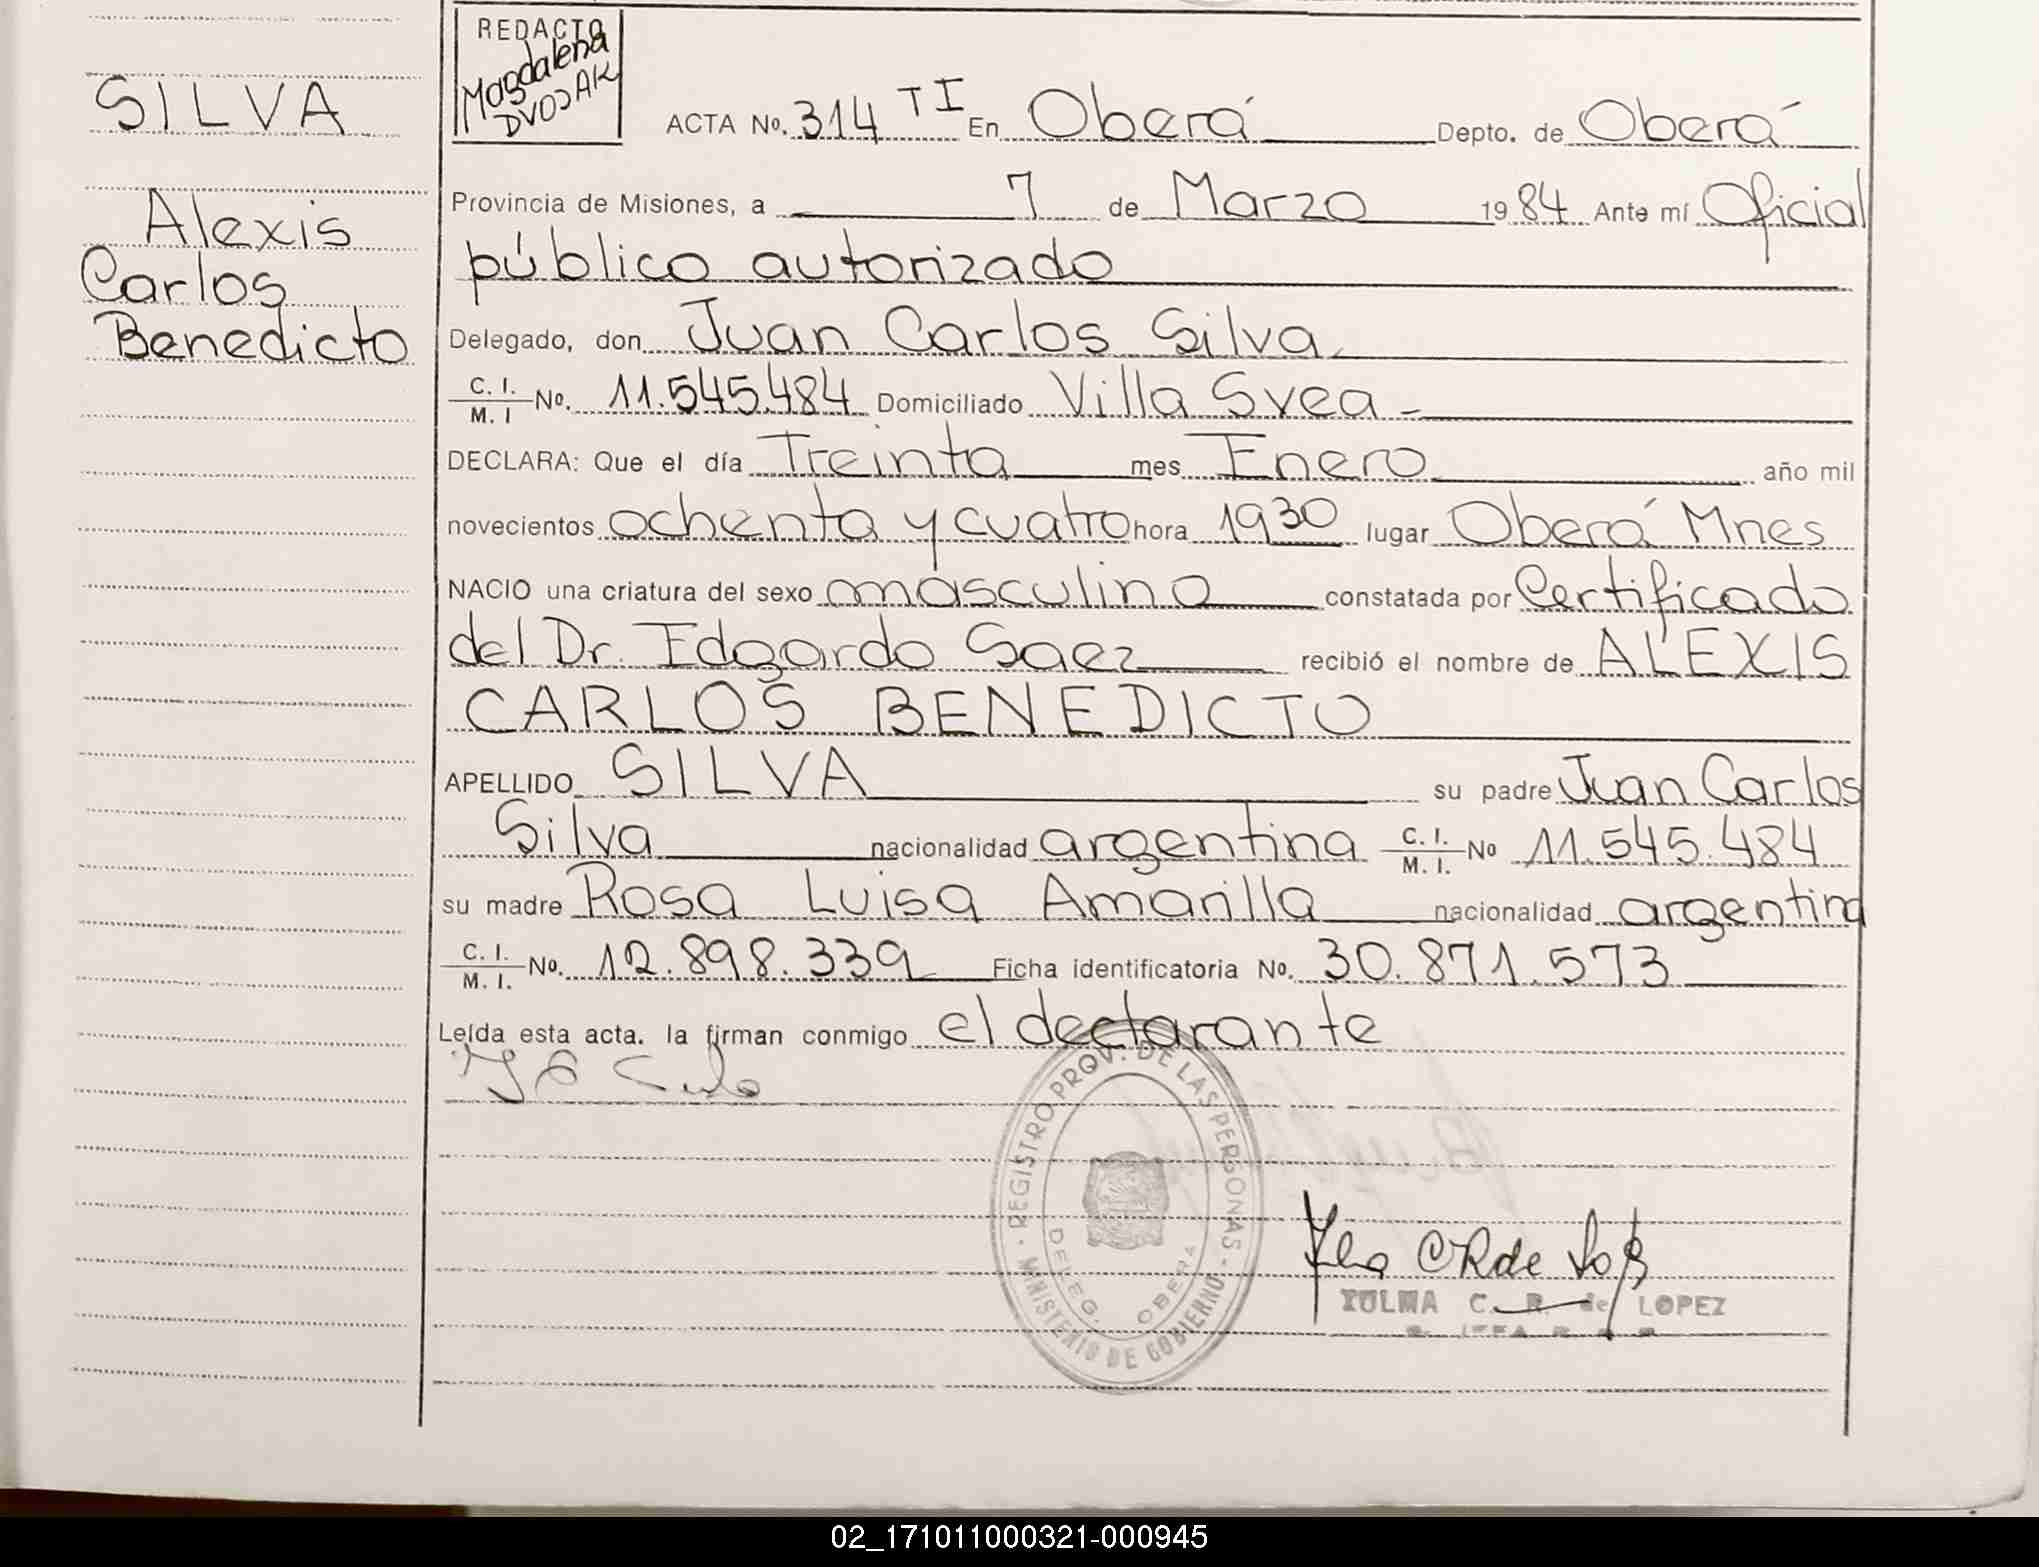 SILVA
Alexis
Carlos
Benedicto
REDACTO
Magdalena
DVOJAK
ACTA No. 314 TI En Oberá Depto. de Oberá
Provincia de Misiones, a 7 de Marzo 1984 Ante mí Oficial
público autorizado
Delegado, don Juan Carlos Silva.
C. I. / M. I No. 11.545.484 Domiciliado Villa Svea -
DECLARA: Que el día Treinta mes Enero año mil
novecientos ochenta y cuatro hora 1930 lugar Oberá Mnes
NACIO una criatura del sexo masculino constatada por Certificado
del Dr. Edgardo Saez recibió el nombre de ALEXIS
CARLOS BENEDICTO
APELLIDO SILVA su padre Juan Carlos
Silva nacionalidad argentina C. I. / M. I. No 11.545.484
su madre Rosa Luisa Amarilla nacionalidad argentina
C. I. / M. I. No. 12.898.339 Ficha identificatoria No. 30.871.573
Leída esta acta. la firman conmigo el declarante
REGISTRO PROV. DE LAS PERSONAS - MINISTERIO DE GOBIERNO -
DELEG. OBERA
ZULMA C. R. de LOPEZ
02_171011000321-000945